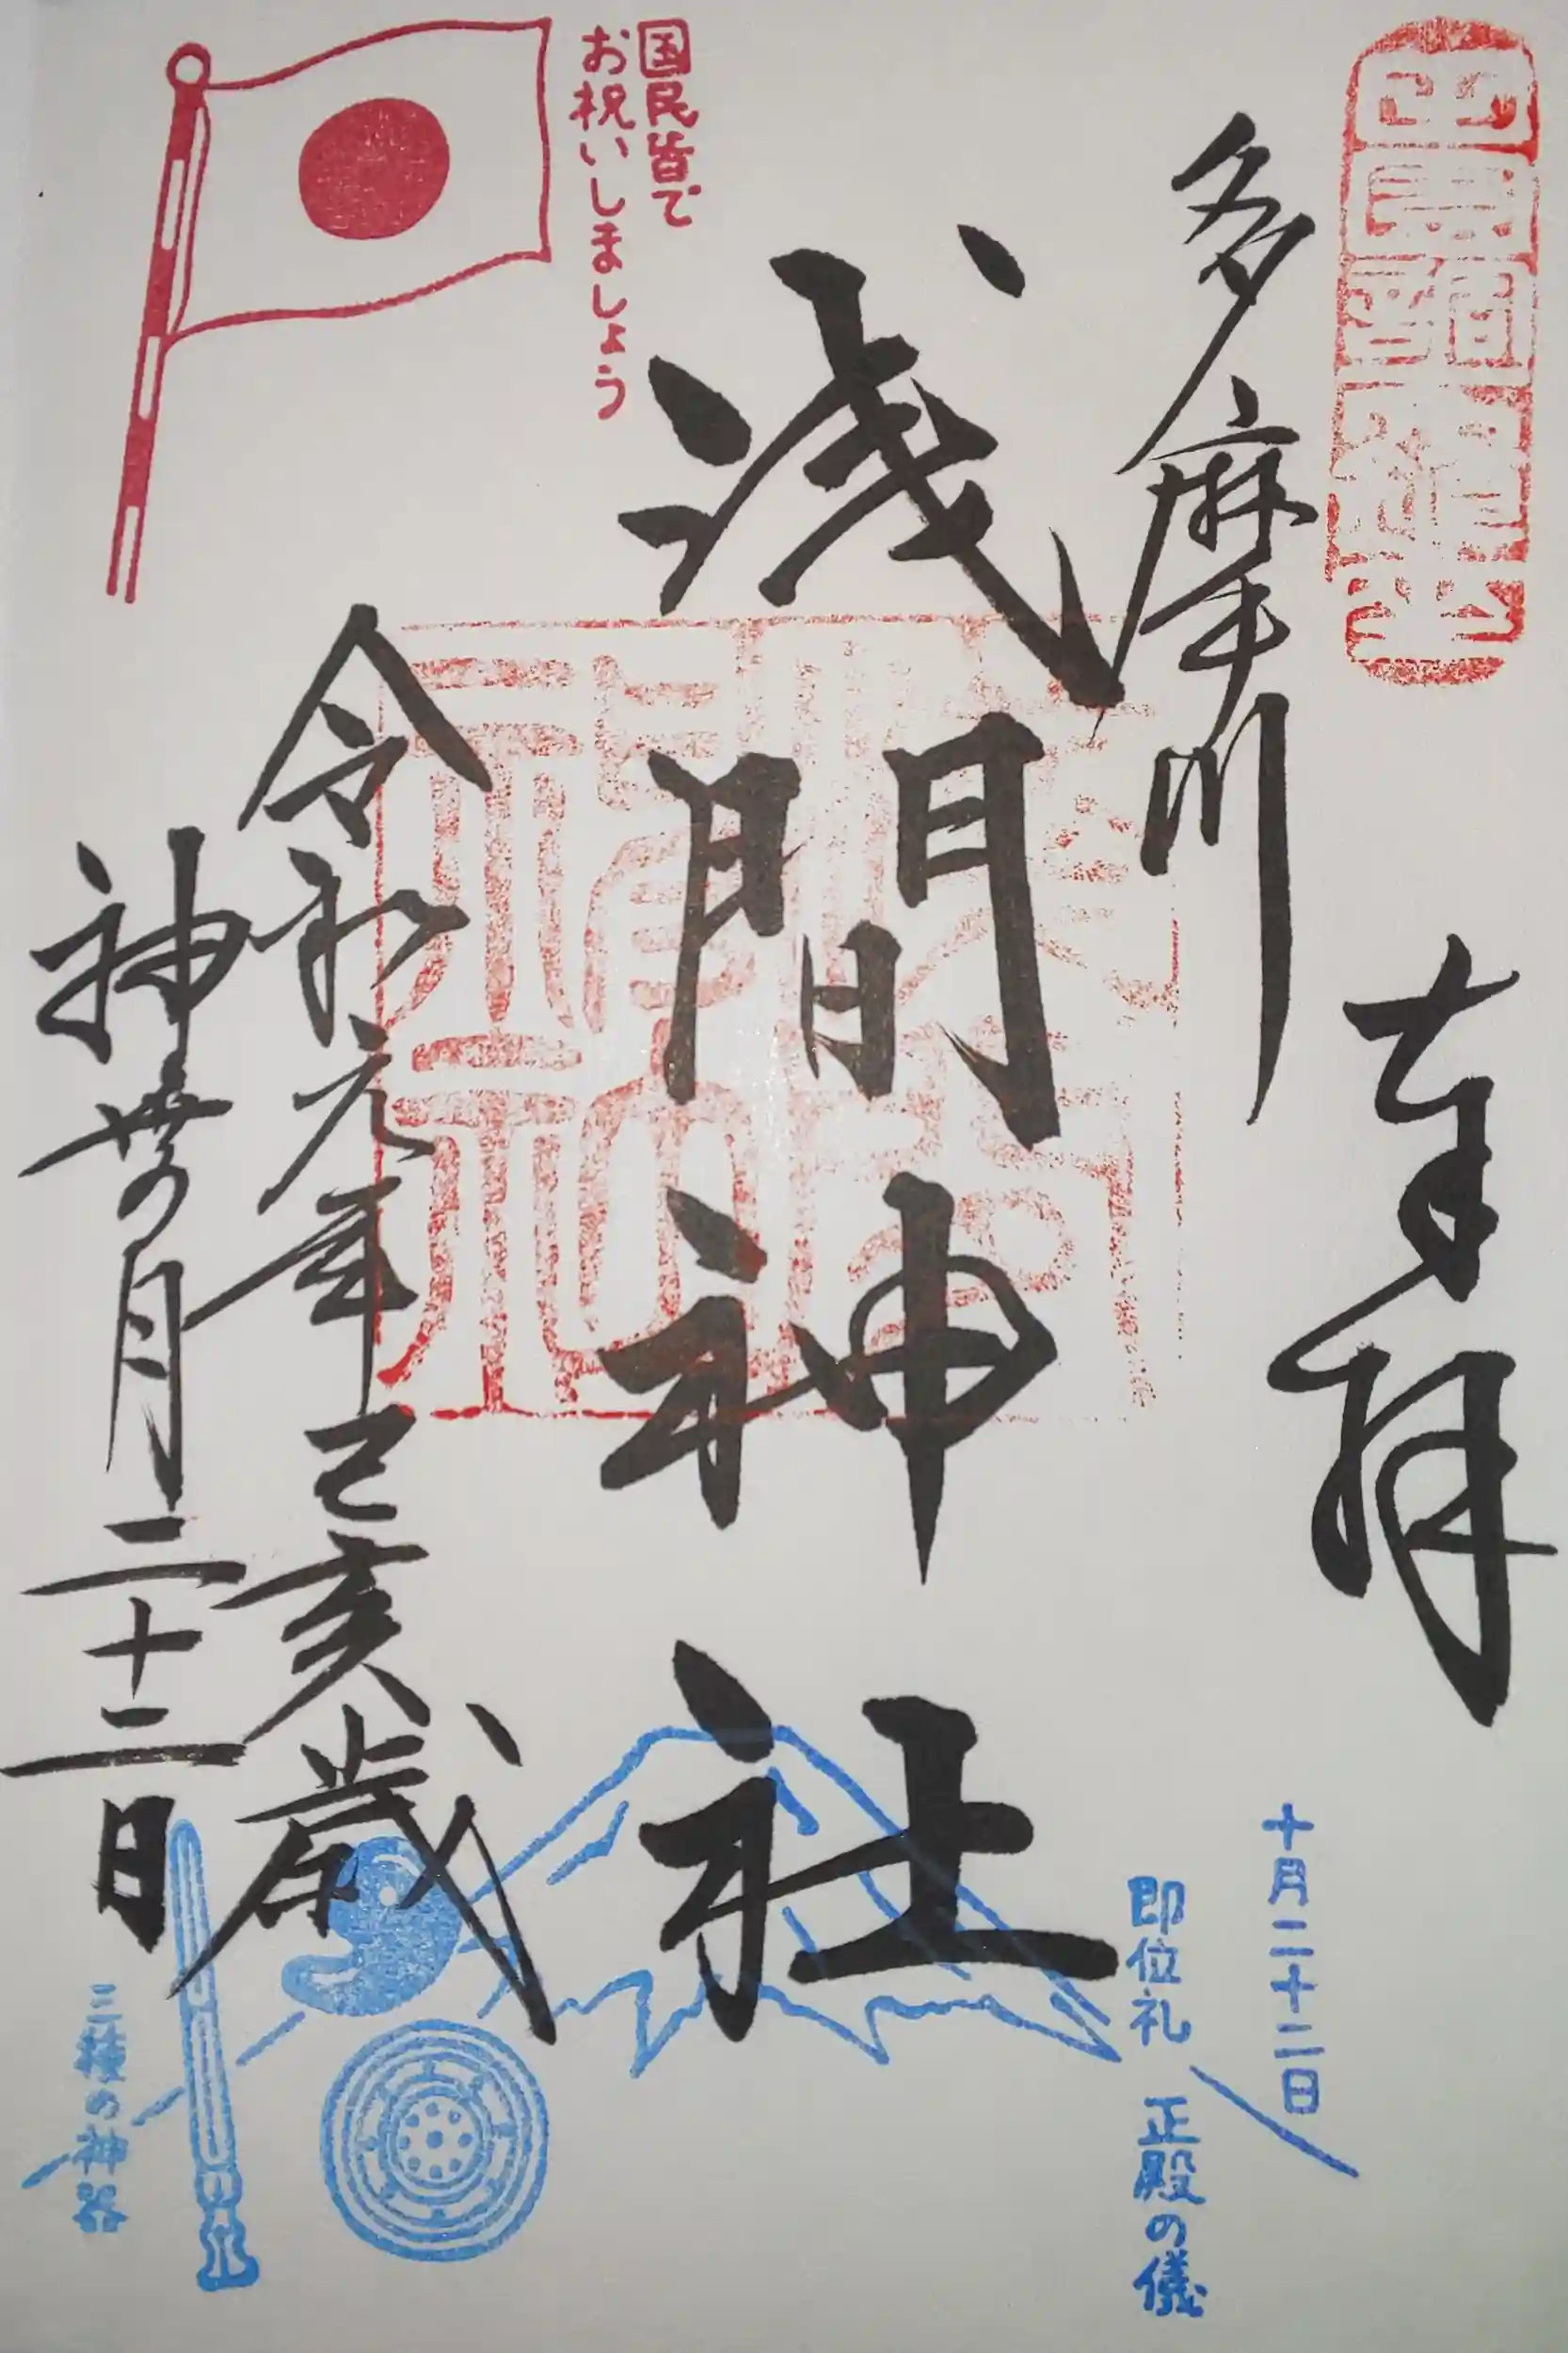 奉拝
多摩川
浅間神社
令和元年己亥歳
神無月二十二日
国民皆で
お祝いしましょう
十月二十二日
即位礼 正殿の儀
三種の神器